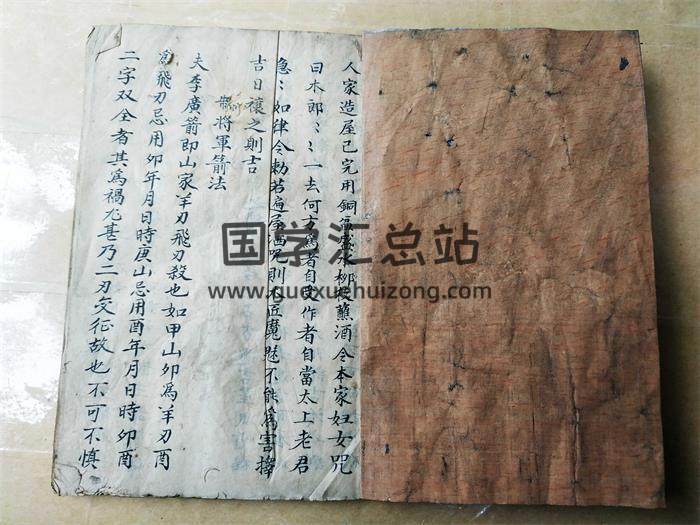 人家造屋已完用銅盆盛水柳枝蘸酒令本家妇女咒
曰木郎木郎一去何方為者自受作者自當太上老君
急急如律令勅若遍屋洒咒則木匠魔魅不能為害擇
吉日禳之則吉
制將軍箭法
夫李廣箭即山家羊刃飛刃殺也如甲山卯為羊刃酉
為飛刃忌用卯年月日時庚山忌用酉年月日時卯酉
二字双全者其為禍尤甚乃二刃交征故也不可不慎
国学汇总站
www.guoxuehuizong.com